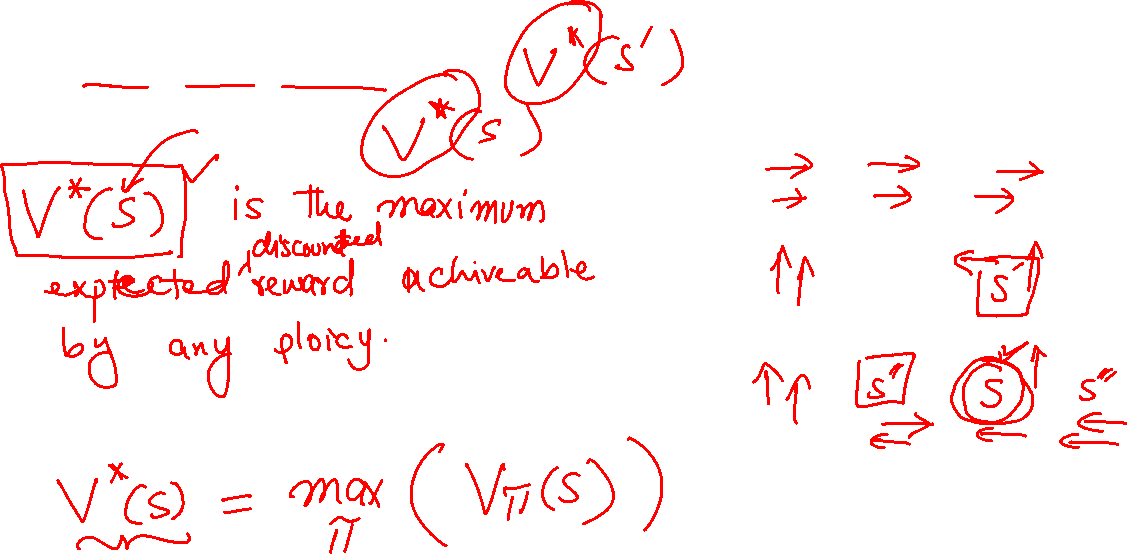 V*(s')
V*(s)
V*(s) is the maximum
discounted
expected reward achiveable
by any ploicy.
V*(s) = max_π ( V_π(s) )
→ → →
→ → →
↑ ↑ s' ↑
↑ ↑ s'' s ↑ s'''